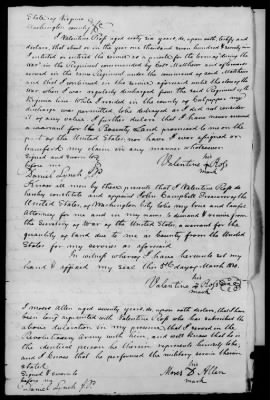 State of Virginia
Washington county
I Valentine Ross aged sixty six years, do, upon oath, testify and
declare, that about or in the year one thousand seven hundred & seventy six
I enlisted or entered the service as a private for the term of during the
war in the Regiment commanded by Col. Matthews and afterwards
served in the same Regiment under the command of said Matthews
and that I continued in the service aforesaid until the close of the
War when I was regularly discharged from the said Regiment of the
Virginia line. While I resided in the county of Culpepper my
discharge was permitted to be destroyed as I did not consider
it of any value. I further declare that I have never received
a warrant for the Bounty Land promised to me on the
part of the United States, nor have I ever assigned or
transferred my claim in any manner whatsoever.
Signed and sworn to
before me
Daniel Lynch J.P.
his
Valentine Ross
mark
Know all men by these presents, that I Valentine Ross do
hereby constitute and appoint John Campbell Treasurer of the
United States, of Washington City to be my true and lawful
Attorney for me and in my name to demand & receive from the
Secretary of War of the United States, a warrant for the
quantity of land due to me as a bounty from the United
States for my services as aforesaid.
In witness whereof I have hereunto set my
hand & affixed my seal this day of March 1830.
his
Valentine Ross
mark
I Moses Allen aged seventy years, do, upon oath declare, that I have
been long acquainted with Valentine Ross who has subscribed the
above declaration in my presence, that I served in the
Revolutionary Army with him, and well know that he is
the identical person he therein represents himself to be,
and I know that he performed the military service therein
stated.
Signed & sworn to
before me
Daniel Lynch J.P.
his
Moses D. Allen
mark